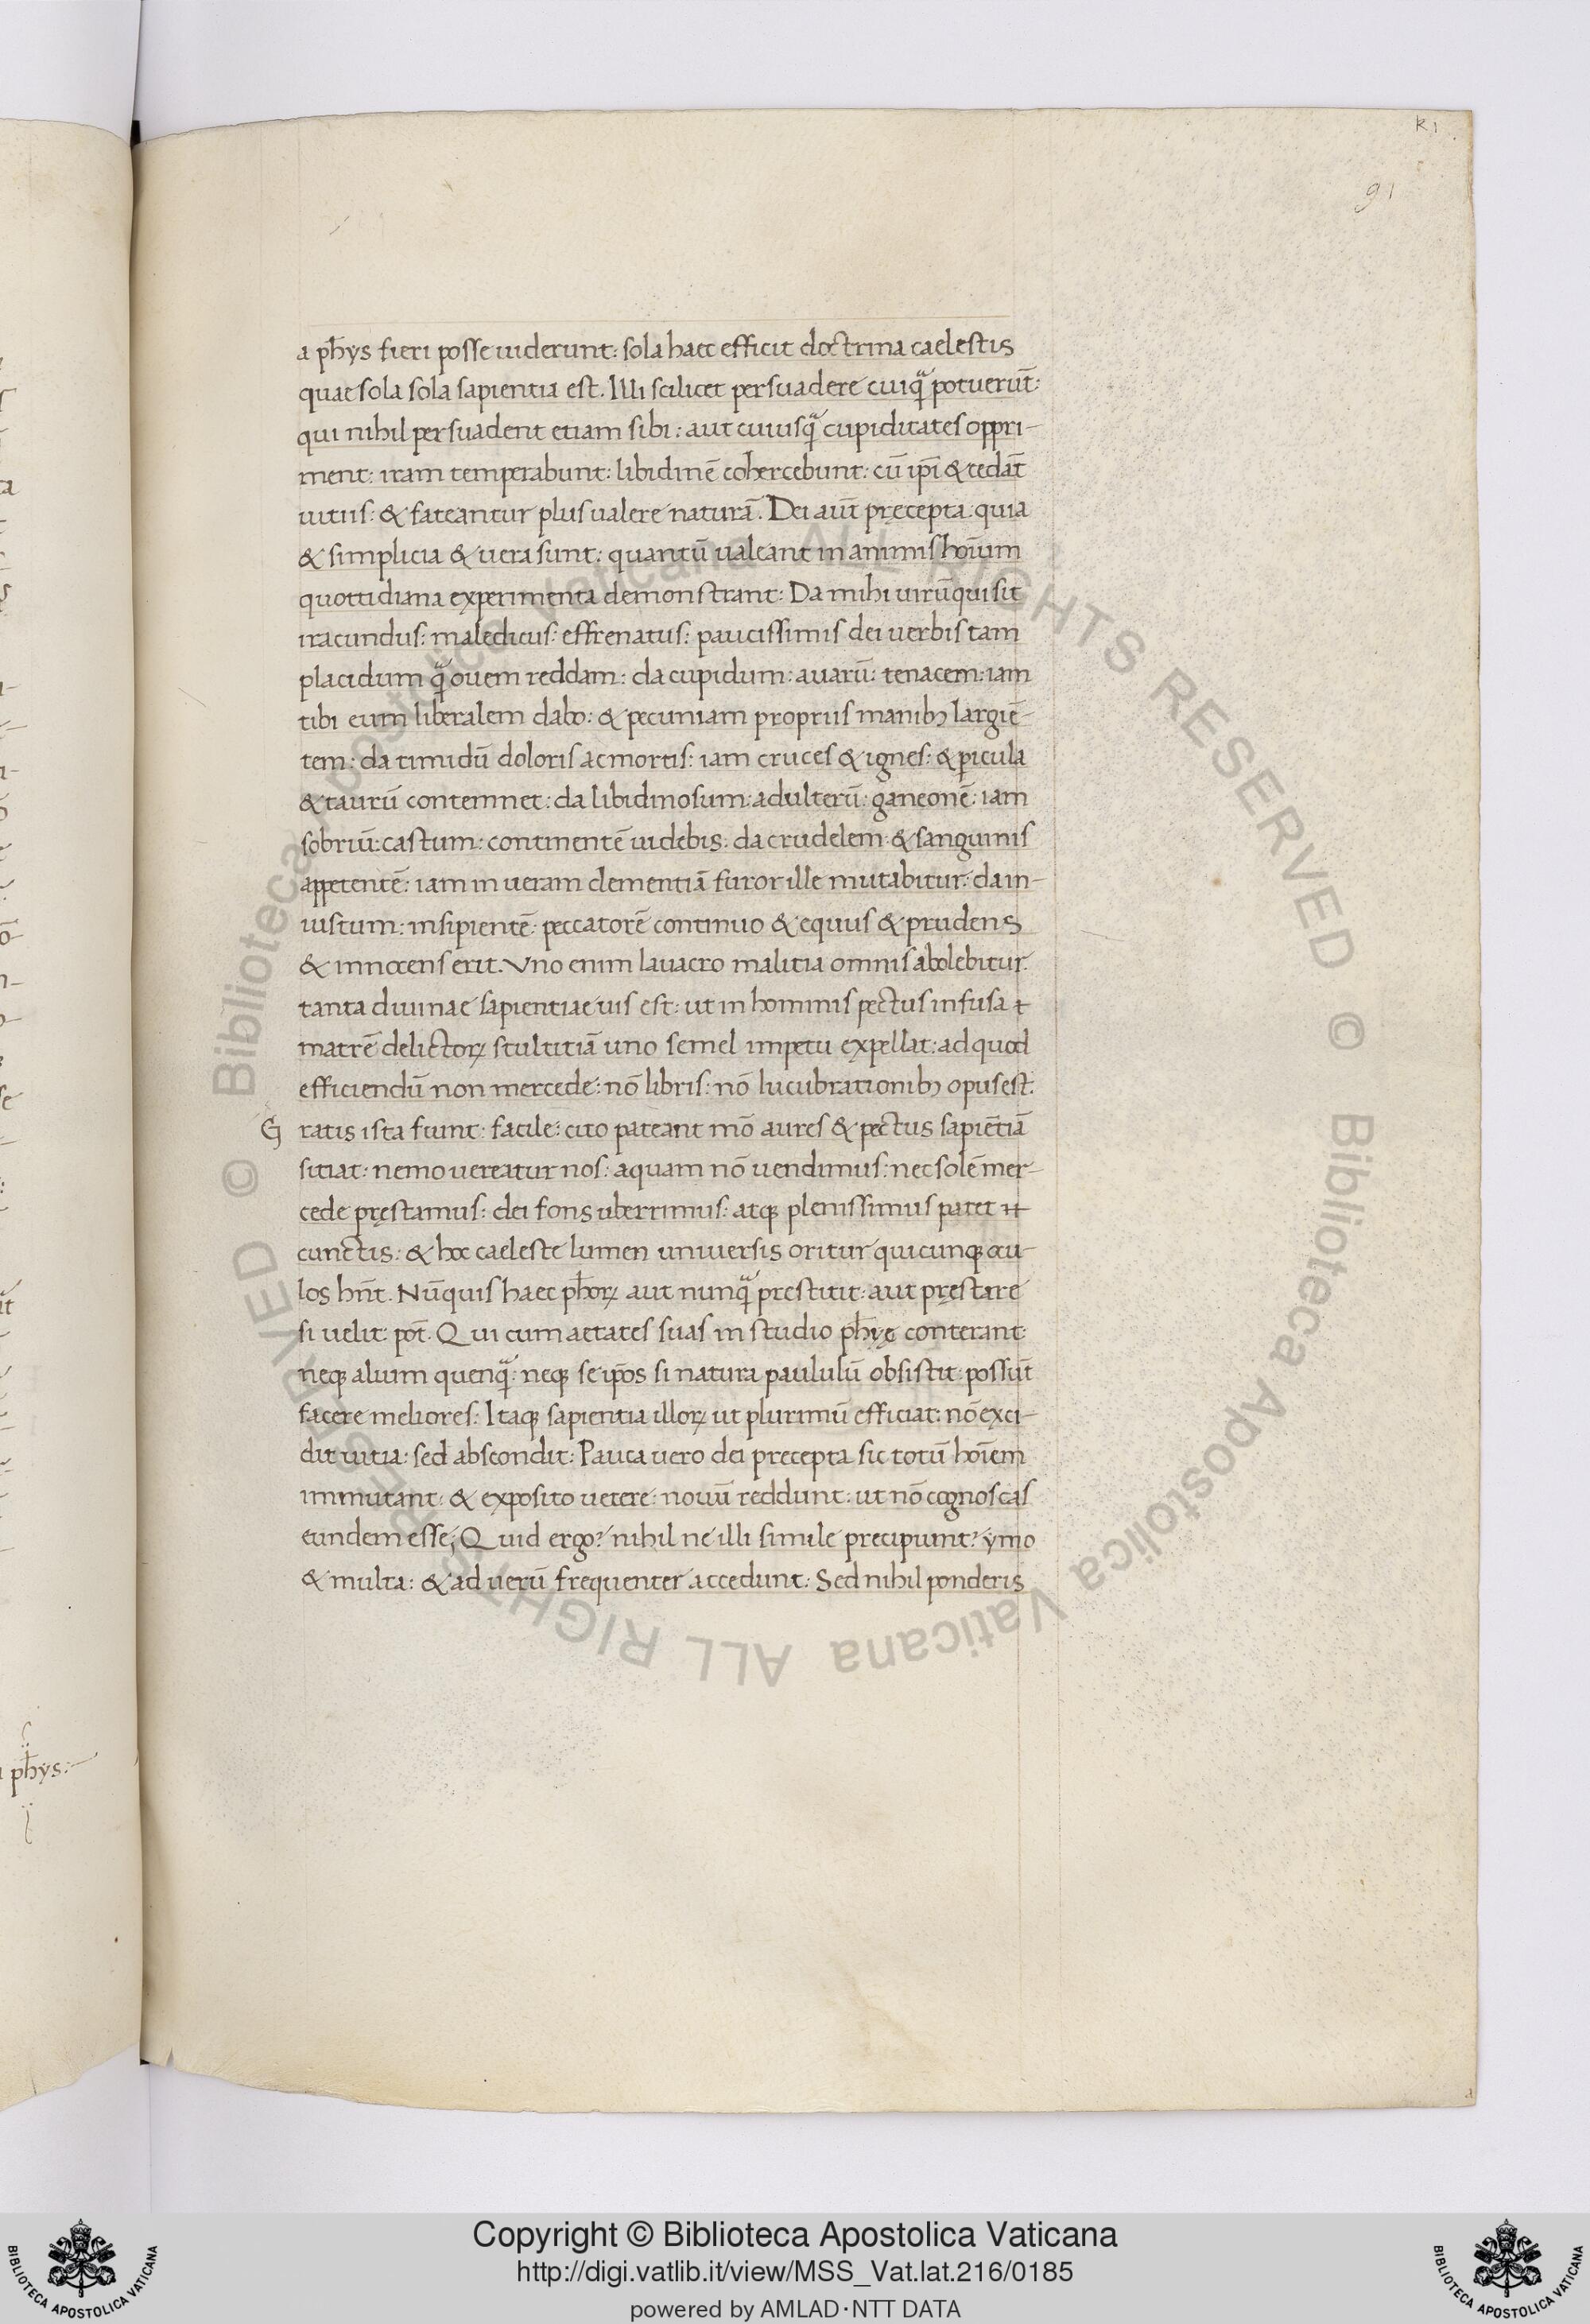 k 1
91
a ph̄ys fieri posse uiderunt: sola haec efficit doctrina caelestis
quae sola sola sapientia est. Illi scilicet persuadere cuiqᷓ potuerūt:
qui nihil persuadent etiam sibi: aut cuiusqᷓ cupiditates oppri-
ment: iram temperabunt: libidinē cohercebunt: cū ip̄i & cedāt
uitiis: & fateantur plus ualere naturā. Dei aūt pręcepta: quia
& simplicia & uera sunt: quantū ualeant in animis hoīum
quottidiana experimenta demonstrant: Da mihi uirū qui sit
iracundus: maledicus: effrenatus: paucissimis dei uerbis tam
placidum qᷓ ouem reddam: da cupidum: auarū: tenacem: iam
tibi eum liberalem dabo: & pecuniam propriis manibꝫ largiē-
tem: da timidū doloris ac mortis: iam cruces & ignes: & ꝑicula
& taurū contemnet: da libidinosum: adulterū: ganeonē: iam
sobriū: castum: continentē uidebis: da crudelem: & sanguinis
appetentē: iam in ueram clementiā furor ille mutabitur: da in-
iustum: insipientē: peccatorē continuo & equus & prudens
& innocens erit. Vno enim lauacro malitia omnis abolebitur:
tanta diuinae sapientiae uis est: ut in hominis pectus infusa
matrē delictoꝝ stultitiā uno semel impetu expellat: ad quod
efficiendū non mercede: nō libris: nō lucubrationibꝫ opus est.
G ratis ista fiunt: facile: cito pateant mō aures & pectus sapiētiā
sitiat: nemo uereatur nos: aquam nō uendimus: nec solē mer-
cede pręstamus: dei fons uberrimus: atqꝫ plenissimus patet
cunctis: & hoc caeleste lumen uniuersis oritur quicunqꝫ ocu-
los hn̄t. Nūquis haec ph̄oꝝ aut nunqᷓ prestitit: aut pręstare
si uelit: pōt. Qui cum aetates suas in studio ph̄yę conterant:
neqꝫ alium quenqᷓ: neqꝫ se ip̄os si natura paululū obsistit: possūt
facere meliores: Itaqꝫ sapientia illoꝝ ut plurimū efficiat: nō exci-
dit uitia: sed abscondit: Pauca uero dei precepta sic totū hoīem
immutant: & exposito uetere: nouū reddunt: ut nō cognoscas
eundem esse; Quid ergo? nihil ne illi simile precipiunt? ymo
& multa: & ad uerū frequenter accedunt: Sed nihil ponderis
ph̄ys:
© Biblioteca Apostolica Vaticana ALL RIGHTS RESERVED © Biblioteca Apostolica Vaticana ALL RIGHTS RESERVED
BIBLIOTECA APOSTOLICA VATICANA
Copyright © Biblioteca Apostolica Vaticana
http://digi.vatlib.it/view/MSS_Vat.lat.216/0185
powered by AMLAD·NTT DATA
BIBLIOTECA APOSTOLICA VATICANA